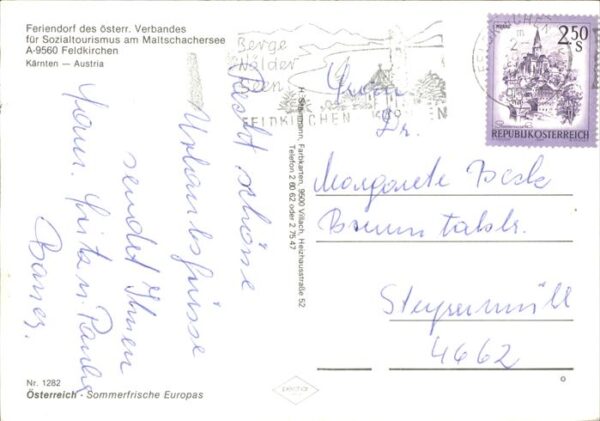 Feriendorf des österr. Verbandes
für Sozialtourismus am Maltschachersee
A-9560 Feldkirchen
Kärnten — Austria
Recht schöne
Urlaubsgrüsse
sendet Ihnen
Fam. Fritz u. Paula
Bauer.
Berge
Wälder
Seen
FELDKIRCHEN
2.50
S
REPUBLIK ÖSTERREICH
Dr.
Margarete Beck
Brunntalstr.
Steyrermühl
4662
Farbkarten, 9500 Villach, Heizhausstraße 52
Telefon 2 60 62 oder 2 75 47
Nr. 1282
Österreich - Sommerfrische Europas